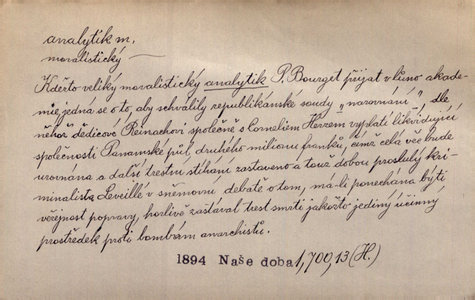 analytik m.
moralistický —
Kdežto veliký moralistický analytik P. Bourget přijat v lůno akade-
mie, jedná se o to, aby schválily republikánské soudy „narovnání“, dle
něhož dědicové Reinachovi společně s Corneliem Herzem vyplatí likvidující
společnosti Panamské půl druhého milionu franků, čímž celá věc bude
urovnána a další trestní stíhání zastaveno a touž dobou proslulý kri-
minalista Leveillé v sněmovní debatě o tom, má-li ponechána býti
veřejnost popravy, horlivě zastával trest smrti jakožto jediný účinný
prostředek proti bombám anarchistů.
1894 Naše doba 1, 700, 13 (H.)